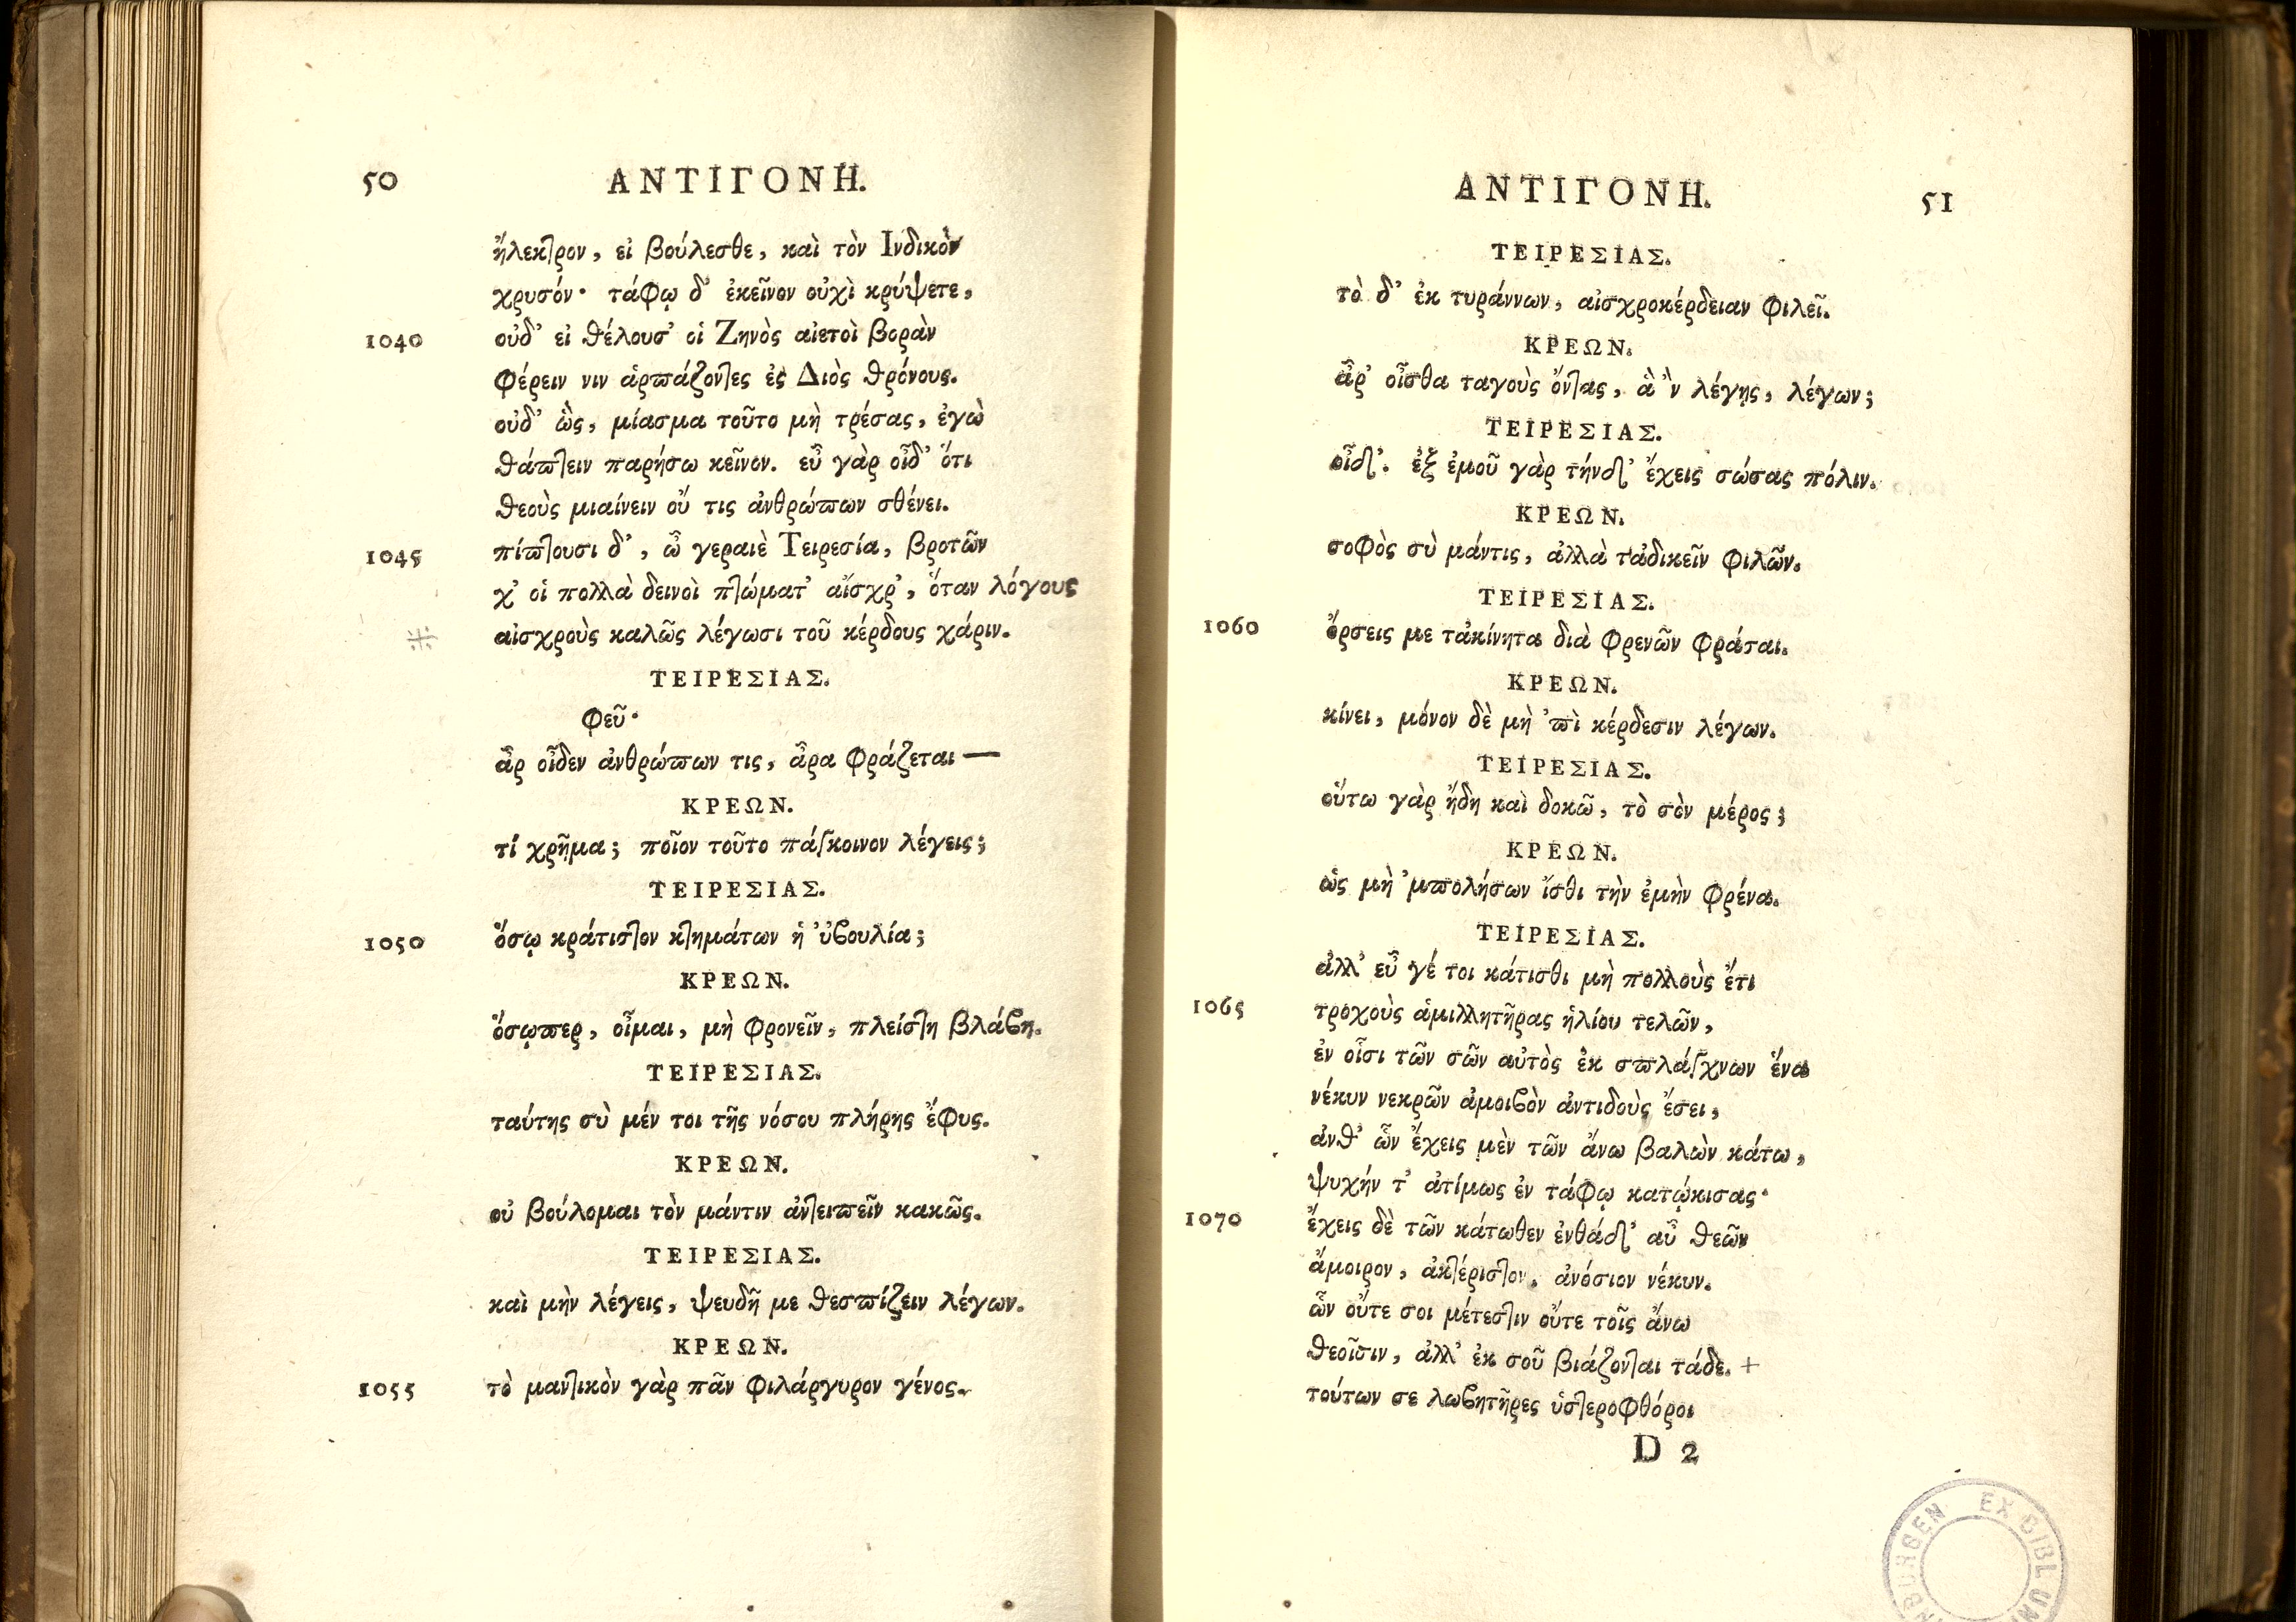 50
ΑΝΤΙΓΟΝΗ.
ἤλεκτρον, εἰ βούλεσθε, καὶ τὸν Ἰνδικὸν
χρυσόν· τάφῳ δ' ἐκεῖνον οὐχὶ κρύψετε,
1040 οὐδ' εἰ θέλουσ' οἱ Ζηνὸς αἰετοὶ βορὰν
φέρειν νιν ἁρπάζοντες ἐς Διὸς θρόνους.
οὐδ' ὣς, μίασμα τοῦτο μὴ τρέσας, ἐγὼ
θάπτειν παρήσω κεῖνον. εὖ γὰρ οἶδ' ὅτι
θεοὺς μιαίνειν οὔ τις ἀνθρώπων σθένει.
1045 πίπτουσι δ', ὦ γεραιὲ Τειρεσία, βροτῶν
χ' οἱ πολλὰ δεινοὶ πτώματ' αἴσχρ', ὅταν λόγους
αἰσχροὺς καλῶς λέγωσι τοῦ κέρδους χάριν.
ΤΕΙΡΕΣΙΑΣ.
φεῦ·
ἆρ οἶδεν ἀνθρώπων τις, ἆρα φράζεται —
ΚΡΕΩΝ.
τί χρῆμα; ποῖον τοῦτο πάγκοινον λέγεις;
ΤΕΙΡΕΣΙΑΣ.
1050 ὅσῳ κράτιστον κτημάτων ἡ 'ὐβουλία;
ΚΡΕΩΝ.
ὅσῳπερ, οἶμαι, μὴ φρονεῖν, πλείστη βλάβη.
ΤΕΙΡΕΣΙΑΣ.
ταύτης σὺ μέν τοι τῆς νόσου πλήρης ἔφυς.
ΚΡΕΩΝ.
οὐ βούλομαι τὸν μάντιν ἀντειπεῖν κακῶς.
ΤΕΙΡΕΣΙΑΣ.
καὶ μὴν λέγεις, ψευδῆ με θεσπίζειν λέγων.
ΚΡΕΩΝ.
1055 τὸ μαντικὸν γὰρ πᾶν φιλάργυρον γένος.
ΑΝΤΙΓΟΝΗ.
51
ΤΕΙΡΕΣΙΑΣ.
τὸ δ' ἐκ τυράννων, αἰσχροκέρδειαν φιλεῖ.
ΚΡΕΩΝ.
ἆρ' οἶσθα ταγοὺς ὄντας, ἃ 'ν λέγῃς, λέγων;
ΤΕΙΡΕΣΙΑΣ.
οἶδ'. ἐξ ἐμοῦ γὰρ τήνδ' ἔχεις σώσας πόλιν.
ΚΡΕΩΝ.
σοφὸς σὺ μάντις, ἀλλὰ τἀδικεῖν φιλῶν.
ΤΕΙΡΕΣΙΑΣ.
1060 ὄρσεις με τἀκίνητα διὰ φρενῶν φράσαι.
ΚΡΕΩΝ.
κίνει, μόνον δὲ μὴ 'πὶ κέρδεσιν λέγων.
ΤΕΙΡΕΣΙΑΣ.
οὕτω γὰρ ἤδη καὶ δοκῶ, τὸ σὸν μέρος;
ΚΡΕΩΝ.
ὡς μὴ 'μπολήσων ἴσθι τὴν ἐμὴν φρένα.
ΤΕΙΡΕΣΙΑΣ.
ἀλλ' εὖ γέ τοι κάτισθι μὴ πολλοὺς ἔτι
1065 τροχοὺς ἁμιλλητῆρας ἡλίου τελῶν,
ἐν οἷσι τῶν σῶν αὐτὸς ἐκ σπλάγχνων ἕνα
νέκυν νεκρῶν ἀμοιβὸν ἀντιδοὺς ἔσει,
ἀνθ' ὧν ἔχεις μὲν τῶν ἄνω βαλὼν κάτω,
ψυχήν τ' ἀτίμως ἐν τάφῳ κατῴκισας·
1070 ἔχεις δὲ τῶν κάτωθεν ἐνθάδ' αὖ θεῶν
ἄμοιρον, ἀκτέριστον, ἀνόσιον νέκυν.
ὧν οὔτε σοι μέτεστιν οὔτε τοῖς ἄνω
θεοῖσιν, ἀλλ' ἐκ σοῦ βιάζονται τάδε. +
τούτων σε λωβητῆρες ὑστεροφθόροι
D 2
EX BIBL